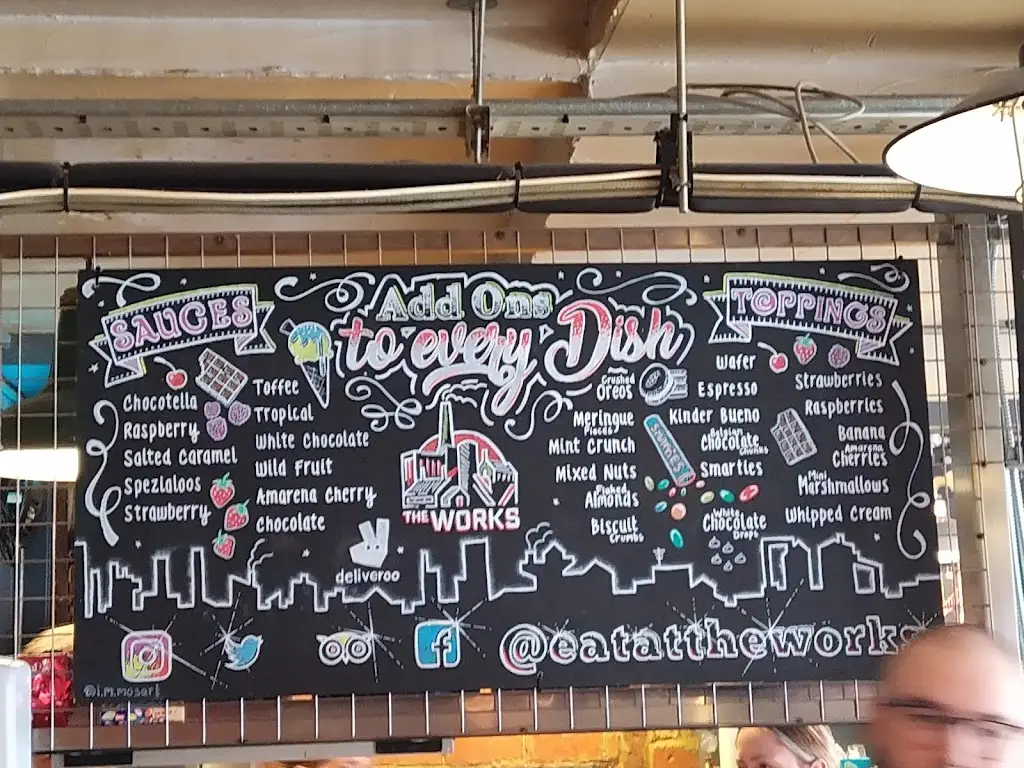 Add Ons
to every Dish
SAUCES
Chocotella
Raspberry
Salted Caramel
Spezialoos
Strawberry
Toffee
Tropical
White Chocolate
Wild Fruit
Amarena Cherry
Chocolate
THE WORKS
deliveroo
TOPPINGS
Crushed
Oreos
Meringue
Pieces
Mint Crunch
Mixed Nuts
Flaked
Almonds
Biscuit
Crumbs
Wafer
Espresso
Kinder Bueno
Chocolate
Chunks
Smarties
White
Chocolate
Drops
SMARTIES
Strawberries
Raspberries
Banana
Amarena
Cherries
Mini
Marshmallows
Whipped Cream
f
@eatattheworks
@i.m.mosart